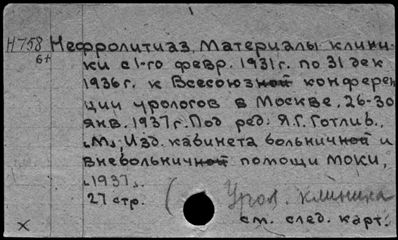 Н758 Нефролитиаз. Материалы клини-
6+ ки с 1-го февр. 1931 г. по 31 дек
1936 г. к Всесоюзной конферен
ции урологов в Москве. 26-30
янв. 1937 г. Под ред: Я.Г. Готлиб.
"М", Изд. кабинета больничной и
внебольничной помощи МОКИ,
"1937".
27 стр. (Урол. клиника
см. след. карт.
x